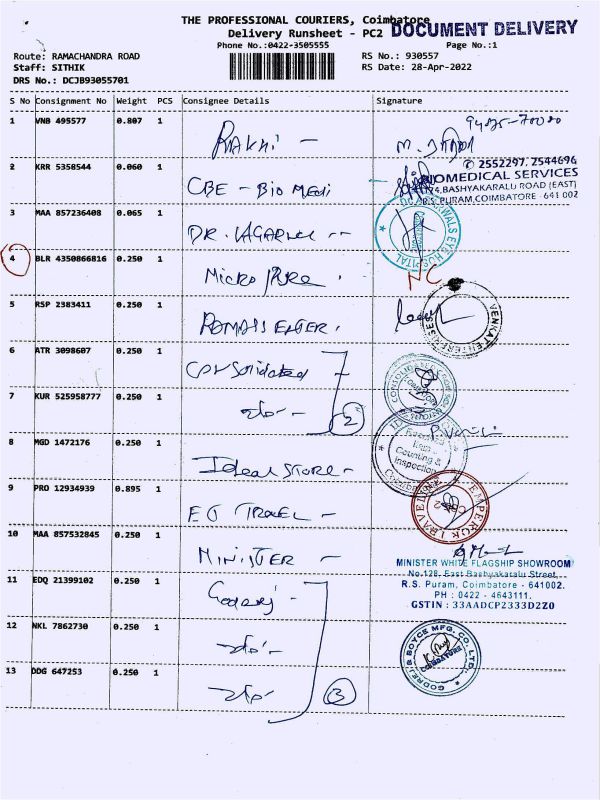 THE PROFESSIONAL COURIERS, Coimbatore
DOCUMENT DELIVERY
Delivery Runsheet - PC2
Phone No.:0422-3505555
Page No.:1
Route: RAMACHANDRA ROAD
RS No.: 930557
Staff: SITHIK
RS Date: 28-Apr-2022
DRS No.: DCJB93055701
S No Consignment No Weight PCS Consignee Details Signature
1 VNB 495577 0.807 1
2 KRR 5358544 0.060 1 CBE - Bio Medi
✆ 2552297, 2544696
BIOMEDICAL SERVICES
74, BASHYAKARALU ROAD (EAST)
R.S. PURAM, COIMBATORE - 641 002
3 MAA 857236408 0.065 1 DR. AGARWAL --
EYE HOSPITAL
4 BLR 4350866816 0.250 1 Micro
NC
5 RSP 2383411 0.250 1
VENKAT ENTERPRISES
6 ATR 3098607 0.250 1 Consolidated
7 KUR 525958777 0.250 1 -do- 2
8 MGD 1472176 0.250 1 Ideal Store -
Received
Item
Counting &
Inspection
9 PRO 12934939 0.895 1 ET TRAVEL -
EMPEROR TRAVEL
10 MAA 857532845 0.250 1 MINISTER -
MINISTER WHITE FLAGSHIP SHOWROOM
No.128, East Bashyakaralu Street,
R.S. Puram, Coimbatore - 641002.
PH : 0422 - 4643111.
GSTIN : 33AADCP2333D2Z0
11 EDQ 21399102 0.250 1 Godrej -
12 NKL 7862730 0.250 1 -do-
GODREJ & BOYCE MFG. CO. LTD.
COIMBATORE
13 DDG 647253 0.250 1 -do- 3